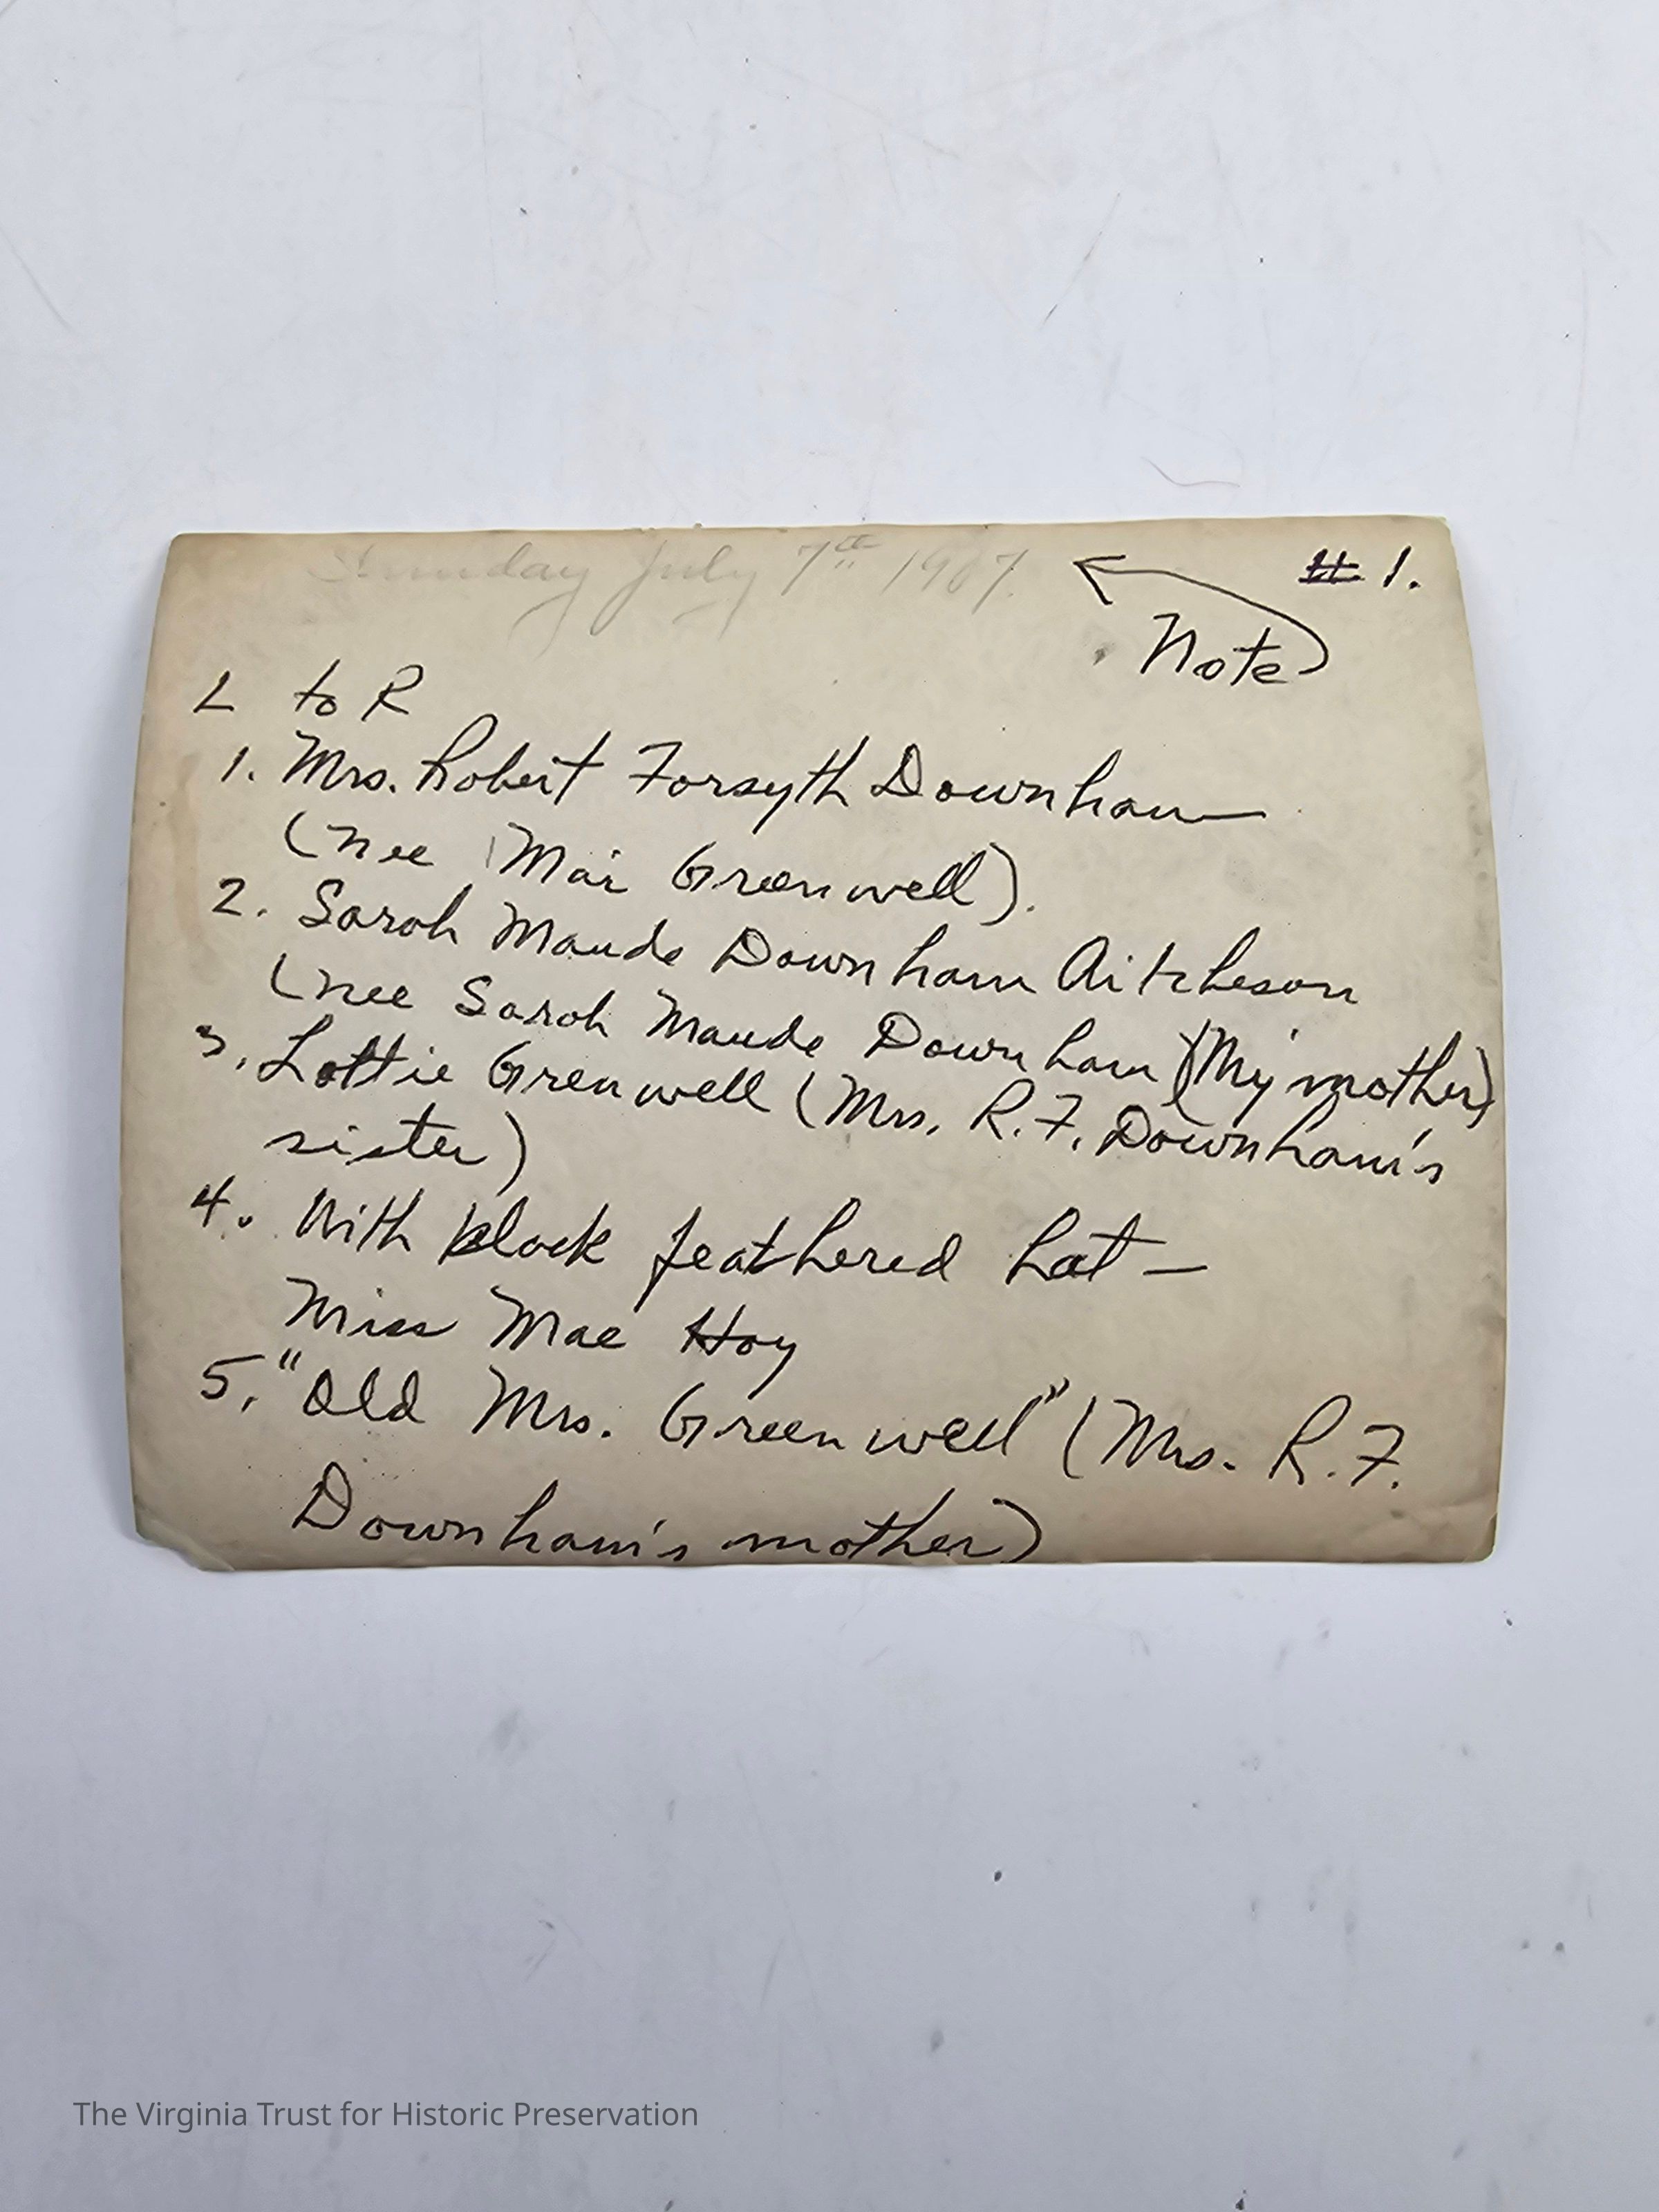 Sunday July 7th 1907.
# 1.
Note
L to R
1. Mrs. Robert Forsyth Downham
(nee Mai Greenwell).
2. Sarah Maude Downham Aitcheson
(nee Sarah Maude Downham) (My mother)
3. Lottie Grenwell (Mrs. R. F. Downham's
sister)
4. With black feathered hat —
Miss Mae Hoy
5. "Old Mrs. Greenwell" (Mrs. R. F.
Downham's mother)
The Virginia Trust for Historic Preservation